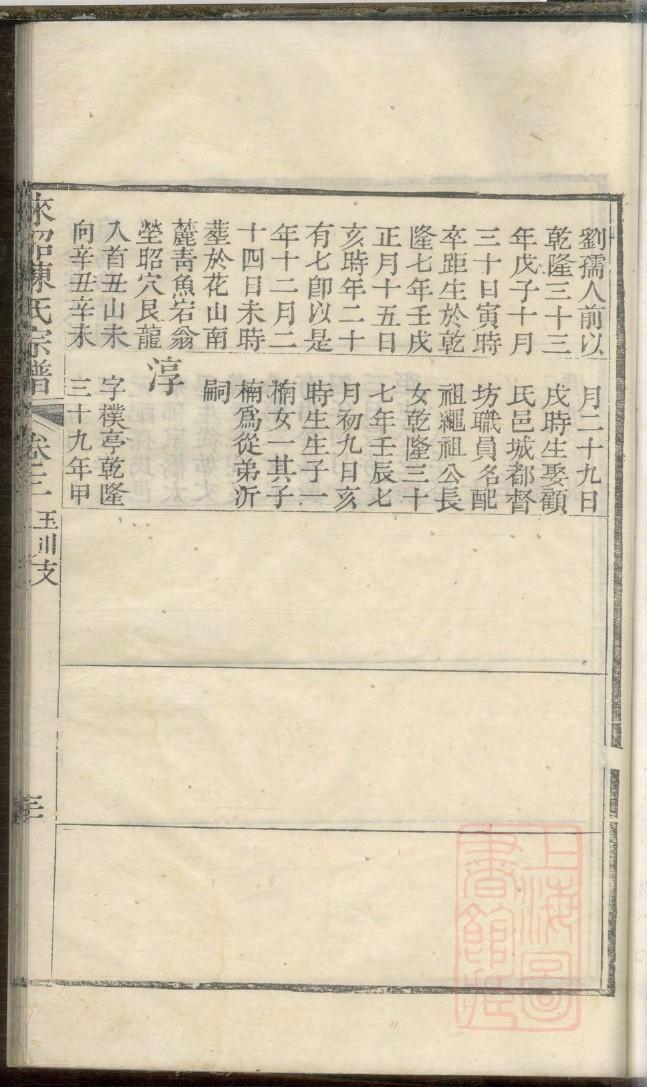 劉孺人前以
乾隆三十三
年戊子十月
三十日寅時
卒距生於乾
隆七年壬戌
正月十五日
亥時年二十
有七卽以是
年十二月二
十四日未時
塟於花山南
麓靑魚宕翁
塋昭穴艮龍
入首丑山未
向辛丑辛未
月二十九日
戌時生娶顧
氏邑城都督
坊職員名配
祖繩祖公長
女乾隆三十
七年壬辰七
月初九日亥
時生生子一
楠女一其子
楠爲從弟沂
嗣
淳
字樸亭乾隆
三十九年甲
陳氏宗譜
玉川支
上海圖書館藏